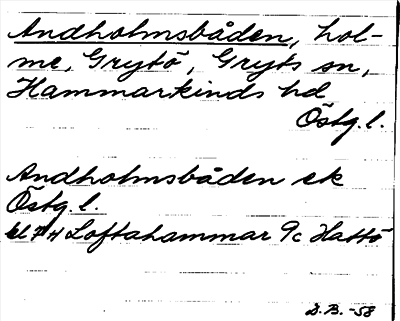 Andholmsbåden, hol-
me, Grytö, Gryts sn,
Hammarkinds hd
Östg.l.
Andholmsbåden ek
Östg.l.
bl 7H Loftahammar 9c Hattö
D.B. -58